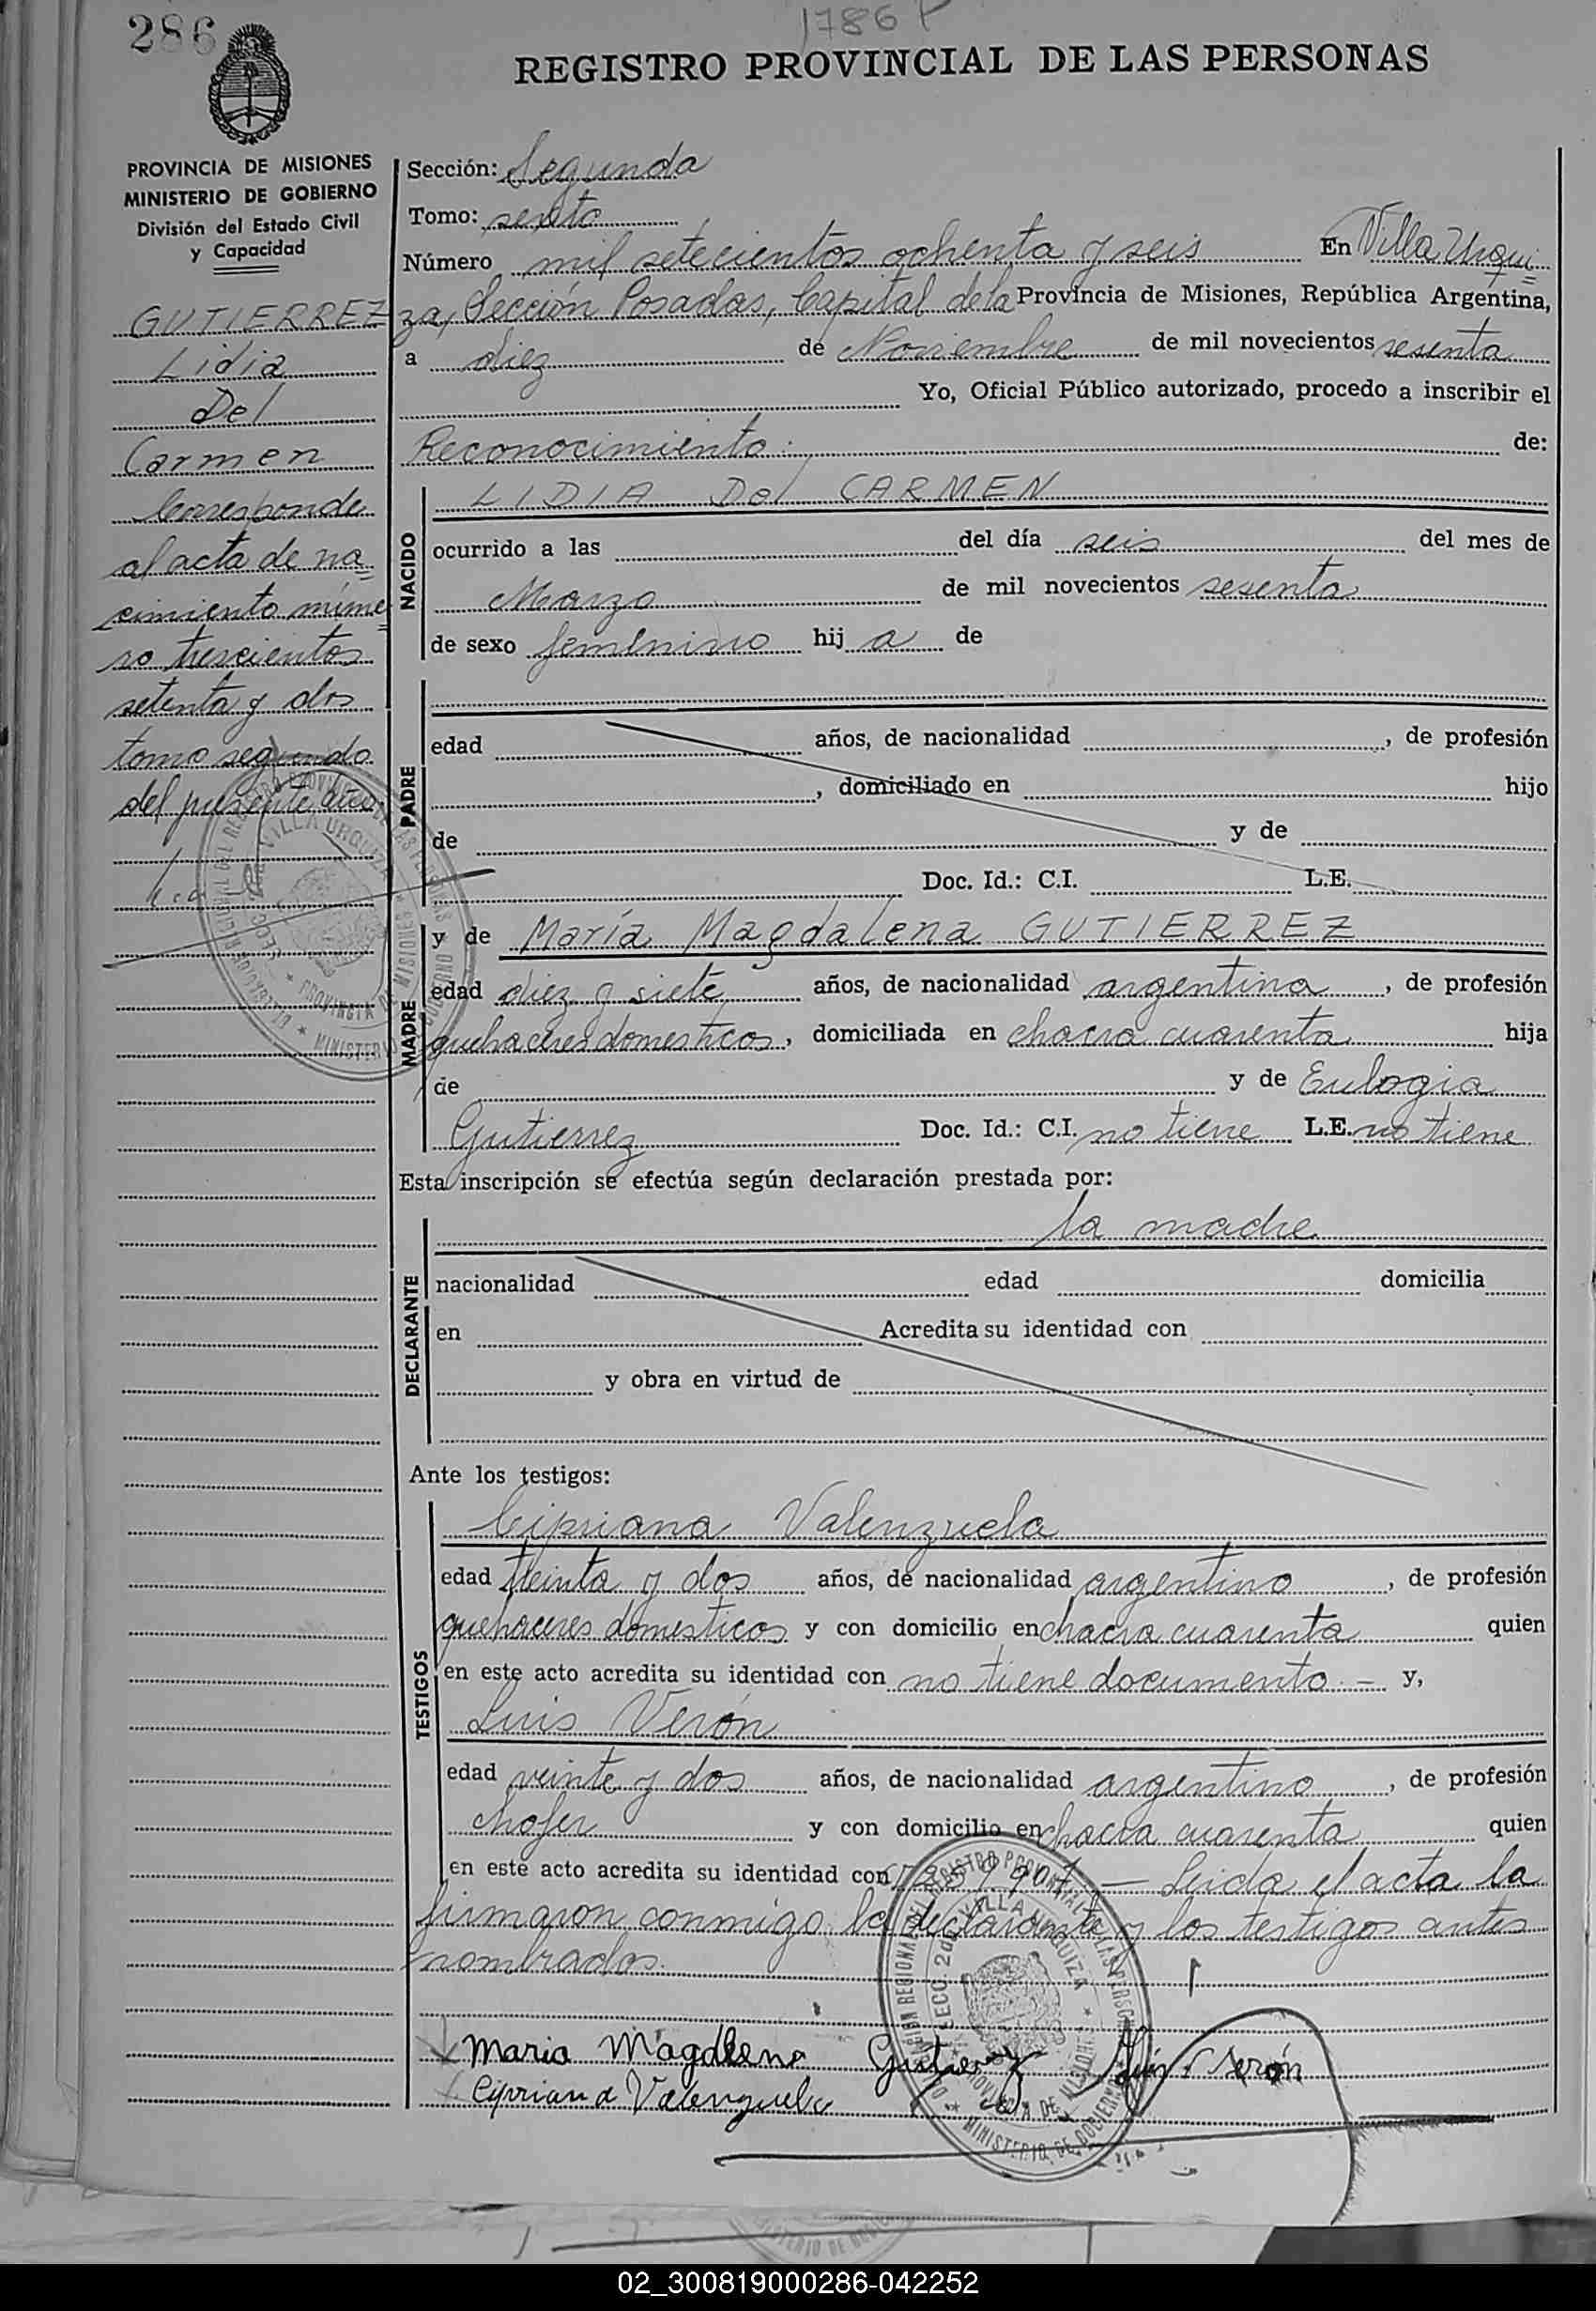 286
1786 P
REGISTRO PROVINCIAL DE LAS PERSONAS
PROVINCIA DE MISIONES
MINISTERIO DE GOBIERNO
División del Estado Civil
y Capacidad
GUTIERREZ
Lidia
Del
Carmen
Corresponde
al acta de na=
cimiento núme=
ro trescientos
setenta y dos
tomo segundo
del presente año.
Sección: Segunda
Tomo: sexto
Número mil setecientos ochenta y seis En Villa Urqui=
za, Sección Posadas, Capital de la Provincia de Misiones, República Argentina,
a diez de Noviembre de mil novecientos sesenta
Yo, Oficial Público autorizado, procedo a inscribir el
Reconocimiento de:
NACIDO
LIDIA Del CARMEN
ocurrido a las del día seis del mes de
Marzo de mil novecientos sesenta
de sexo femenino hij a de
PADRE
edad años, de nacionalidad , de profesión
, domiciliado en hijo
de y de
Doc. Id.: C.I. L.E.
MADRE
y de María Magdalena GUTIERREZ
edad diez y siete años, de nacionalidad argentina , de profesión
quehaceres domesticos, domiciliada en chacra cuarenta hija
de y de Eulogia
Gutierrez Doc. Id.: C.I. no tiene L.E. no tiene
Esta inscripción se efectúa según declaración prestada por:
DECLARANTE
la madre
nacionalidad edad domicilia
en Acredita su identidad con
y obra en virtud de
Ante los testigos:
TESTIGOS
Cipriana Valenzuela
edad treinta y dos años, de nacionalidad argentino , de profesión
quehaceres domesticos y con domicilio en chacra cuarenta quien
en este acto acredita su identidad con no tiene documento.- y,
Luis Verón
edad veinte y dos años, de nacionalidad argentino , de profesión
chofer y con domicilio en chacra cuarenta quien
en este acto acredita su identidad con — Leida el acta la
firmaron conmigo la declarante y los testigos antes
nombrados.
Maria Magdlena Gutierrez Luis Verón
Cipriana Valenzuela
02_300819000286-042252